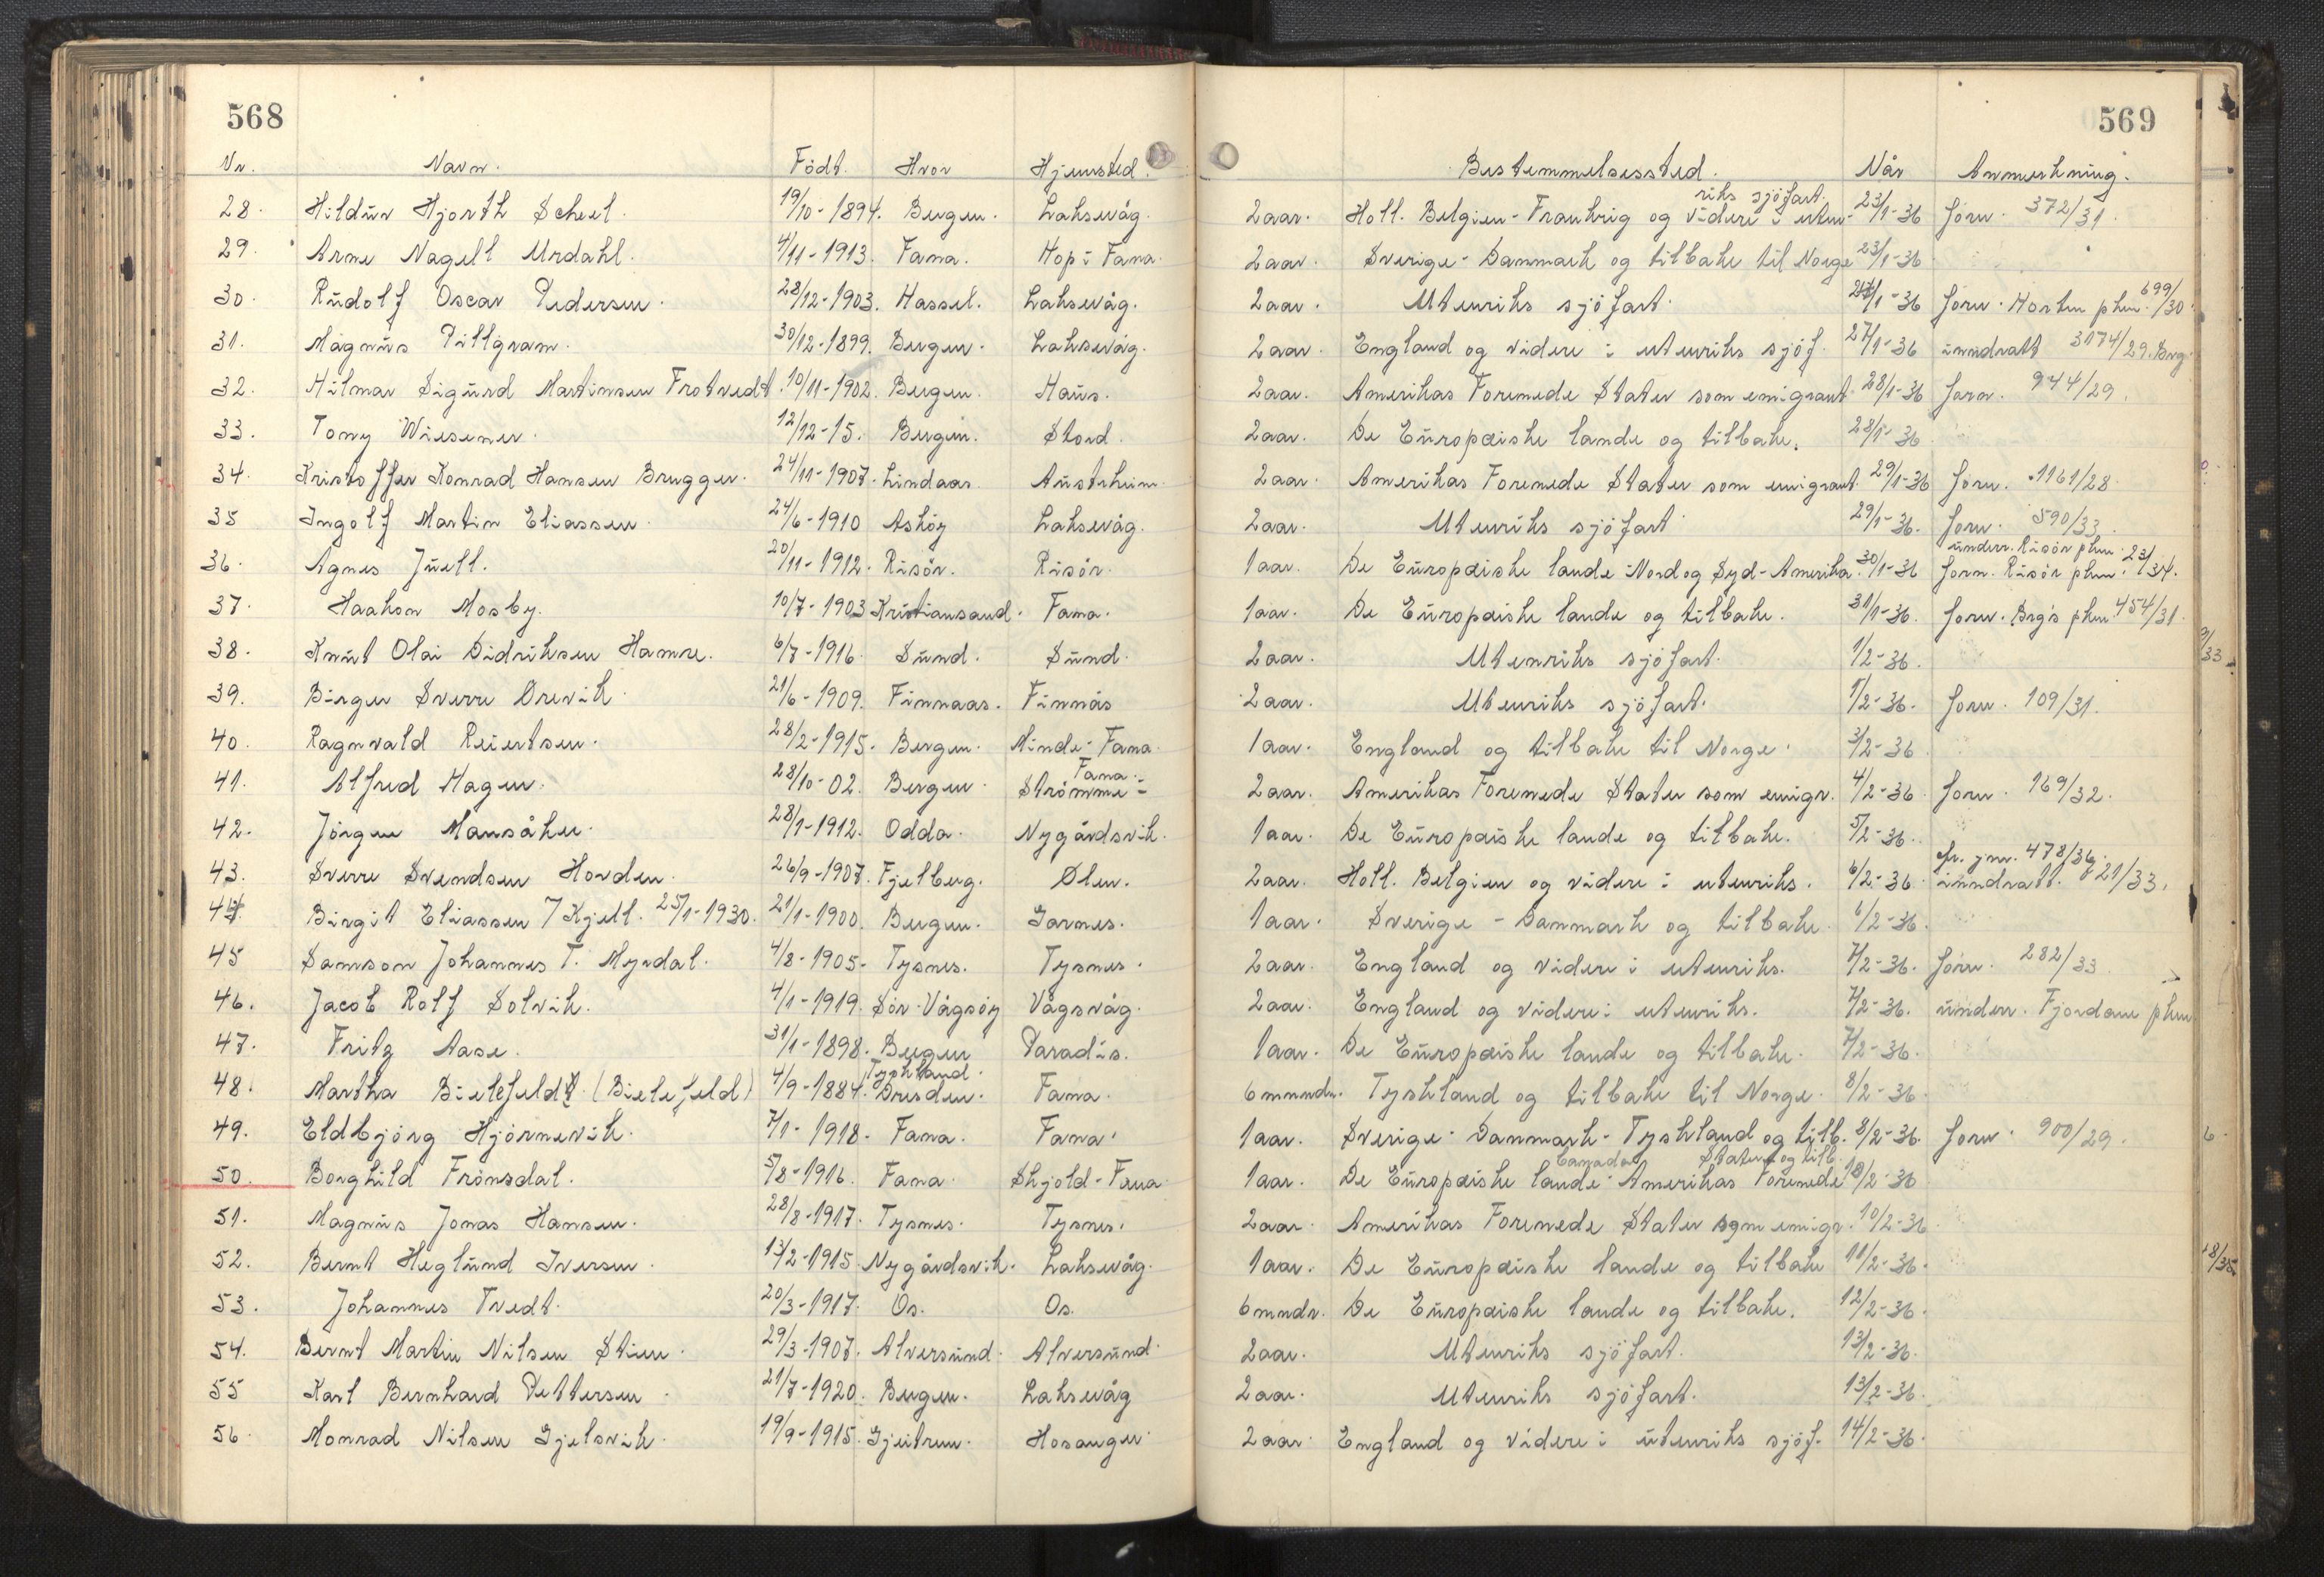 568
569
Nr. Navn. Födt. Hvor Hjemsted. Bestemmelsessted. Når Anmerkning.
28. Hildur Hjorth Scheel. 19/10-1894. Bergen. Laksevåg. 2 aar. Holl. Belgien-Frankrig og videre i uten- riks sjöfart. 23/1-36 forn. 372/31.
29. Arne Nagell Urdahl. 4/11-1913. Fana. Hop i Fana. 2 aar. Sverige-Danmark og tilbake til Norge 23/1-36
30. Rudolf Oscar Pedersen. 28/12-1903. Hassel. Laksevåg. 2 aar. Utenriks sjöfart. 24/1-36 forn. Horten pkm. 699/30.
31. Magnus Pillgram. 30/12-1899. Bergen. Laksevåg. 2 aar. England og videre i utenriks sjöf. 27/1-36 inndratt 3174/29. Brg.
32. Hilmar Sigurd Martinsen Frotvedt. 10/11-1902. Bergen. Haus. 2 aar. Amerikas Forenede Stater som emigrant. 28/1-36 forn. 944/29.
33. Tony Wiesener. 12/12-15. Bergen. Stord. 2 aar. De Europæiske lande og tilbake. 28/1-36
34. Kristoffer Konrad Hansen Brugger. 24/11-1907. Lindaas. Austrheim. 2 aar. Amerikas Forenede Stater som emigrant. 29/1-36 forn. 1161/28.
35 Ingolf Martin Eliassen. 24/6-1910 Asköy Laksevåg. 2 aar. Utenriks sjöfart 29/1-36. forn. 590/33.
36. Agnes Juell. 20/11-1912. Risör. Risör. 1 aar. De Europæiske lande-Nord og Syd-Amerika. 30/1-36 underr. Risör pkm. forn. Risör pkm. 23/34.
37. Haakon Mosby. 10/7-1903 Kristiansand. Fana. 1 aar. De Europæiske lande og tilbake. 31/1-36. forn. Brg's pkm. 454/31.
38. Knut Olai Didriksen Hamre. 6/7-1916. Sund. Sund. 2 aar. Utenriks sjöfart. 1/2-36.
39. Birger Sverre Drevik. 21/6-1909. Finnaas. Finnås 2 aar. Utenriks sjöfart. 1/2-36. forn. 109/31.
40. Ragnvald Reiertsen. 28/2-1915. Bergen. Minde-Fana. 1 aar. England og tilbake til Norge. 3/2-36
41. Alfred Hagen. 28/10-02. Bergen. Strömme i Fana. 2 aar. Amerikas Forenede Stater som emigr. 4/2-36. forn. 169/32.
42. Jörgen Mansåker. 28/1-1912. Odda. Nygårdsvik. 1 aar. De Europæiske lande og tilbake. 5/2-36.
43. Sverre Svendsen Hovden. 26/9-1907. Fjelberg. Ølen. 2 aar. Holl. Belgien og videre i utenriks. 6/2-36. cfr. jnr. 478/36. inndratt. 821/33.
44. Birgit Eliassen 7 Kjell. 25/1-1930. 21/1-1900. Bergen. Garnes. 1 aar. Sverige-Danmark og tilbake. 6/2-36.
45 Samson Johannes T. Myrdal. 4/8-1905. Tysnes. Tysnes. 2 aar. England og videre i utenriks. 7/2-36. forn. 282/33
46. Jacob Rolf Solvik. 4/1-1919. Sör-Vågsöy Vågsvåg. 2 aar. England og videre i utenriks. 7/2-36. underr. Fjordane pkm
47. Fritz Aase. 31/1-1898. Bergen Paradis. 1 aar. De Europæiske lande og tilbake. 7/2-36.
48. Martha Bielefeldt. (Bielefeld) 4/9-1884. Tyskland. Dresden. Fana. 6 mnndr. Tyskland og tilbake til Norge. 8/2-36.
49. Eldbjörg Hjörnevik. 7/1-1918. Fana. Fana. 1 aar. Sverige-Danmark-Tyskland og tilb. 8/2-36. forn. 900/29.
50. Borghild Frönsdal. 5/8-1916. Fana. Skjold-Fana. 1 aar. De Europæiske lande-Canada Amerikas Forenede Stater og tilb. 10/2-36
51. Magnus Jonas Hansen. 28/8-1917. Tysnes. Tysnes. 2 aar. Amerikas Forenede Stater som emigr. 10/2-36
52. Bernt Heglund Iversen. 13/2-1915. Nygårdsvik. Laksevåg. 1 aar. De Europæiske lande og tilbake 11/2-36.
53. Johannes Tvedt. 20/3-1917. Os. Os. 6 mndr. De Europæiske lande og tilbake. 12/2-36.
54. Bernt Martin Nilsen Stien. 29/3-1907. Alversund. Alversund. 2 aar. Utenriks sjöfart. 13/2-36.
55 Karl Bernhard Pettersen. 21/7-1920. Bergen. Laksevåg 2 aar. Utenriks sjöfart. 13/2-36.
56. Monrad Nilsen Gjelsvik. 19/9-1915. Gjeitrem. Hosanger. 2 aar. England og videre i utenriks sjöf. 14/2-36.